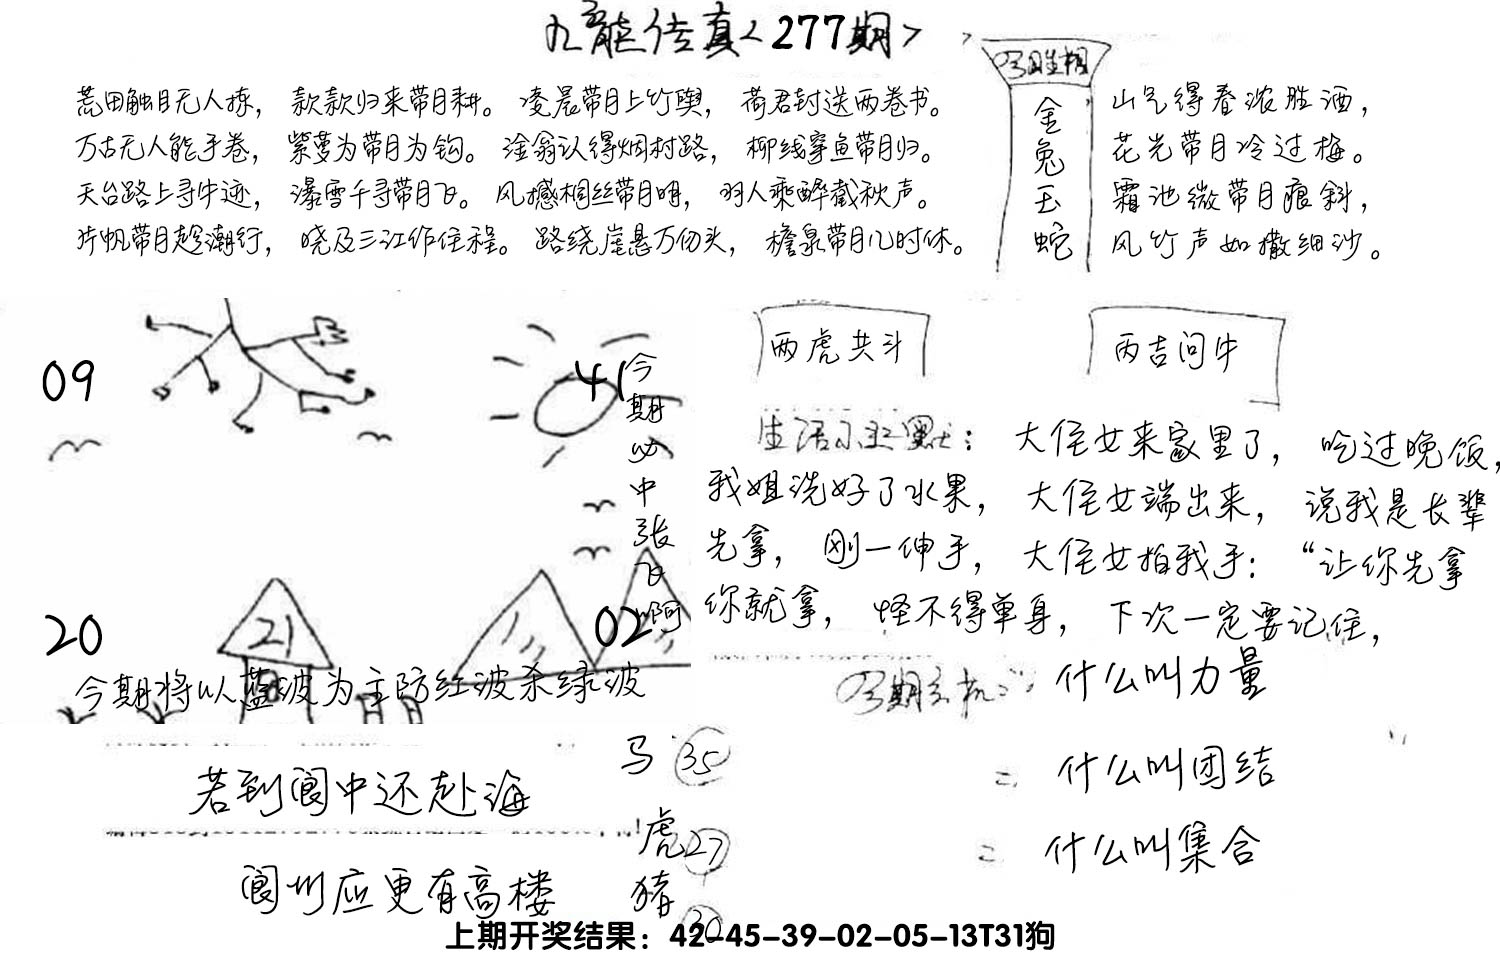 九龙传真<277期>
荒田触目无人掠，款款归来带月耕。凌晨带月上竹舆，荷君封送两卷书。
万古无人能手卷，紫萝为带月为钩。淦翁认得烟村路，柳线穿鱼带月归。
天台路上寻牛迹，瀑雪千寻带月飞。风撼相丝带月明，羽人乘醉截秋声。
片帆带月趁潮行，晓及三江作住程。路绕崖悬万仞头，檐泉带月几时休。
金兔玉蛇
山气得春浓胜酒，
花光带月冷过梅。
霜池微带月痕斜，
风竹声如撒细沙。
09
41
20
21
02
今期必中张飞啊
今期将以蓝波为主防红波杀绿波
两虎共斗
丙吉问牛
生活小幽默：大侄女来家里了，吃过晚饭，
我姐洗好了水果，大侄女端出来，说我是长辈
先拿，刚一伸手，大侄女拍我手：“让你先拿
你就拿，怪不得单身，下次一定要记住，
今期玄机：什么叫力量
= 什么叫团结
= 什么叫集合
若到阆中还赴海
阆州应更有高楼
马 35
虎 27
猪 30
上期开奖结果：42-45-39-02-05-13T31狗